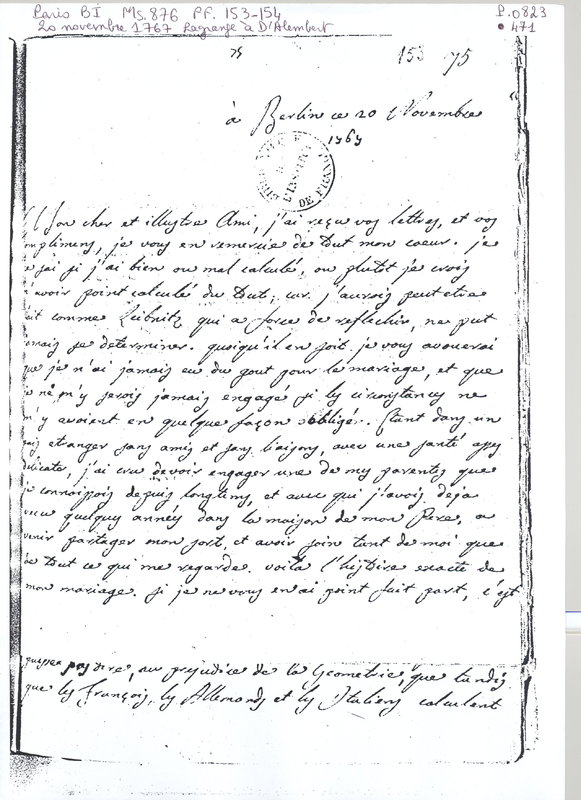 Paris BI Ms. 876 FF. 153-154
20 novembre 1767 Lagrange à D'Alembert
P.0823
• 471
75
153 75
à Berlin ce 20 Novembre
1767
DE FRANCE
Mon cher et illustre Ami, j'ai reçu vos lettres, et vos
omplimens, je vous en remercie de tout mon coeur. je
e sai si j'ai bien ou mal calculé, ou plutot je crois
avoir point calculé du tout; car j'aurois peut etre
ait comme Leibnitz qui a force de reflechir, ne put
amais se determiner. quoiqu'il en soit je vous avouerai
que je n'ai jamais eu du gout pour le mariage, et que
je ne m'y serois jamais engagé si les circonstances ne
m'y avoient en quelque façon obligé. Etant dans un
païs etranger sans amis et sans liaisons, avec une santé assez
delicate, j'ai cru devoir engager une de mes parentes que
je connoissois depuis longtems, et avec qui j'avois deja
vecu quelques années dans la maison de mon Pere, a
venir partager mon sort, et avoir soin tant de moi que
de tout ce qui me regarde. voila l'histoire exacte de
mon mariage. si je ne vous en ai point fait part, c'est
dire, au prejudice de la Geometrie, que tandis
que les François, les Allemands et les Italiens calculent